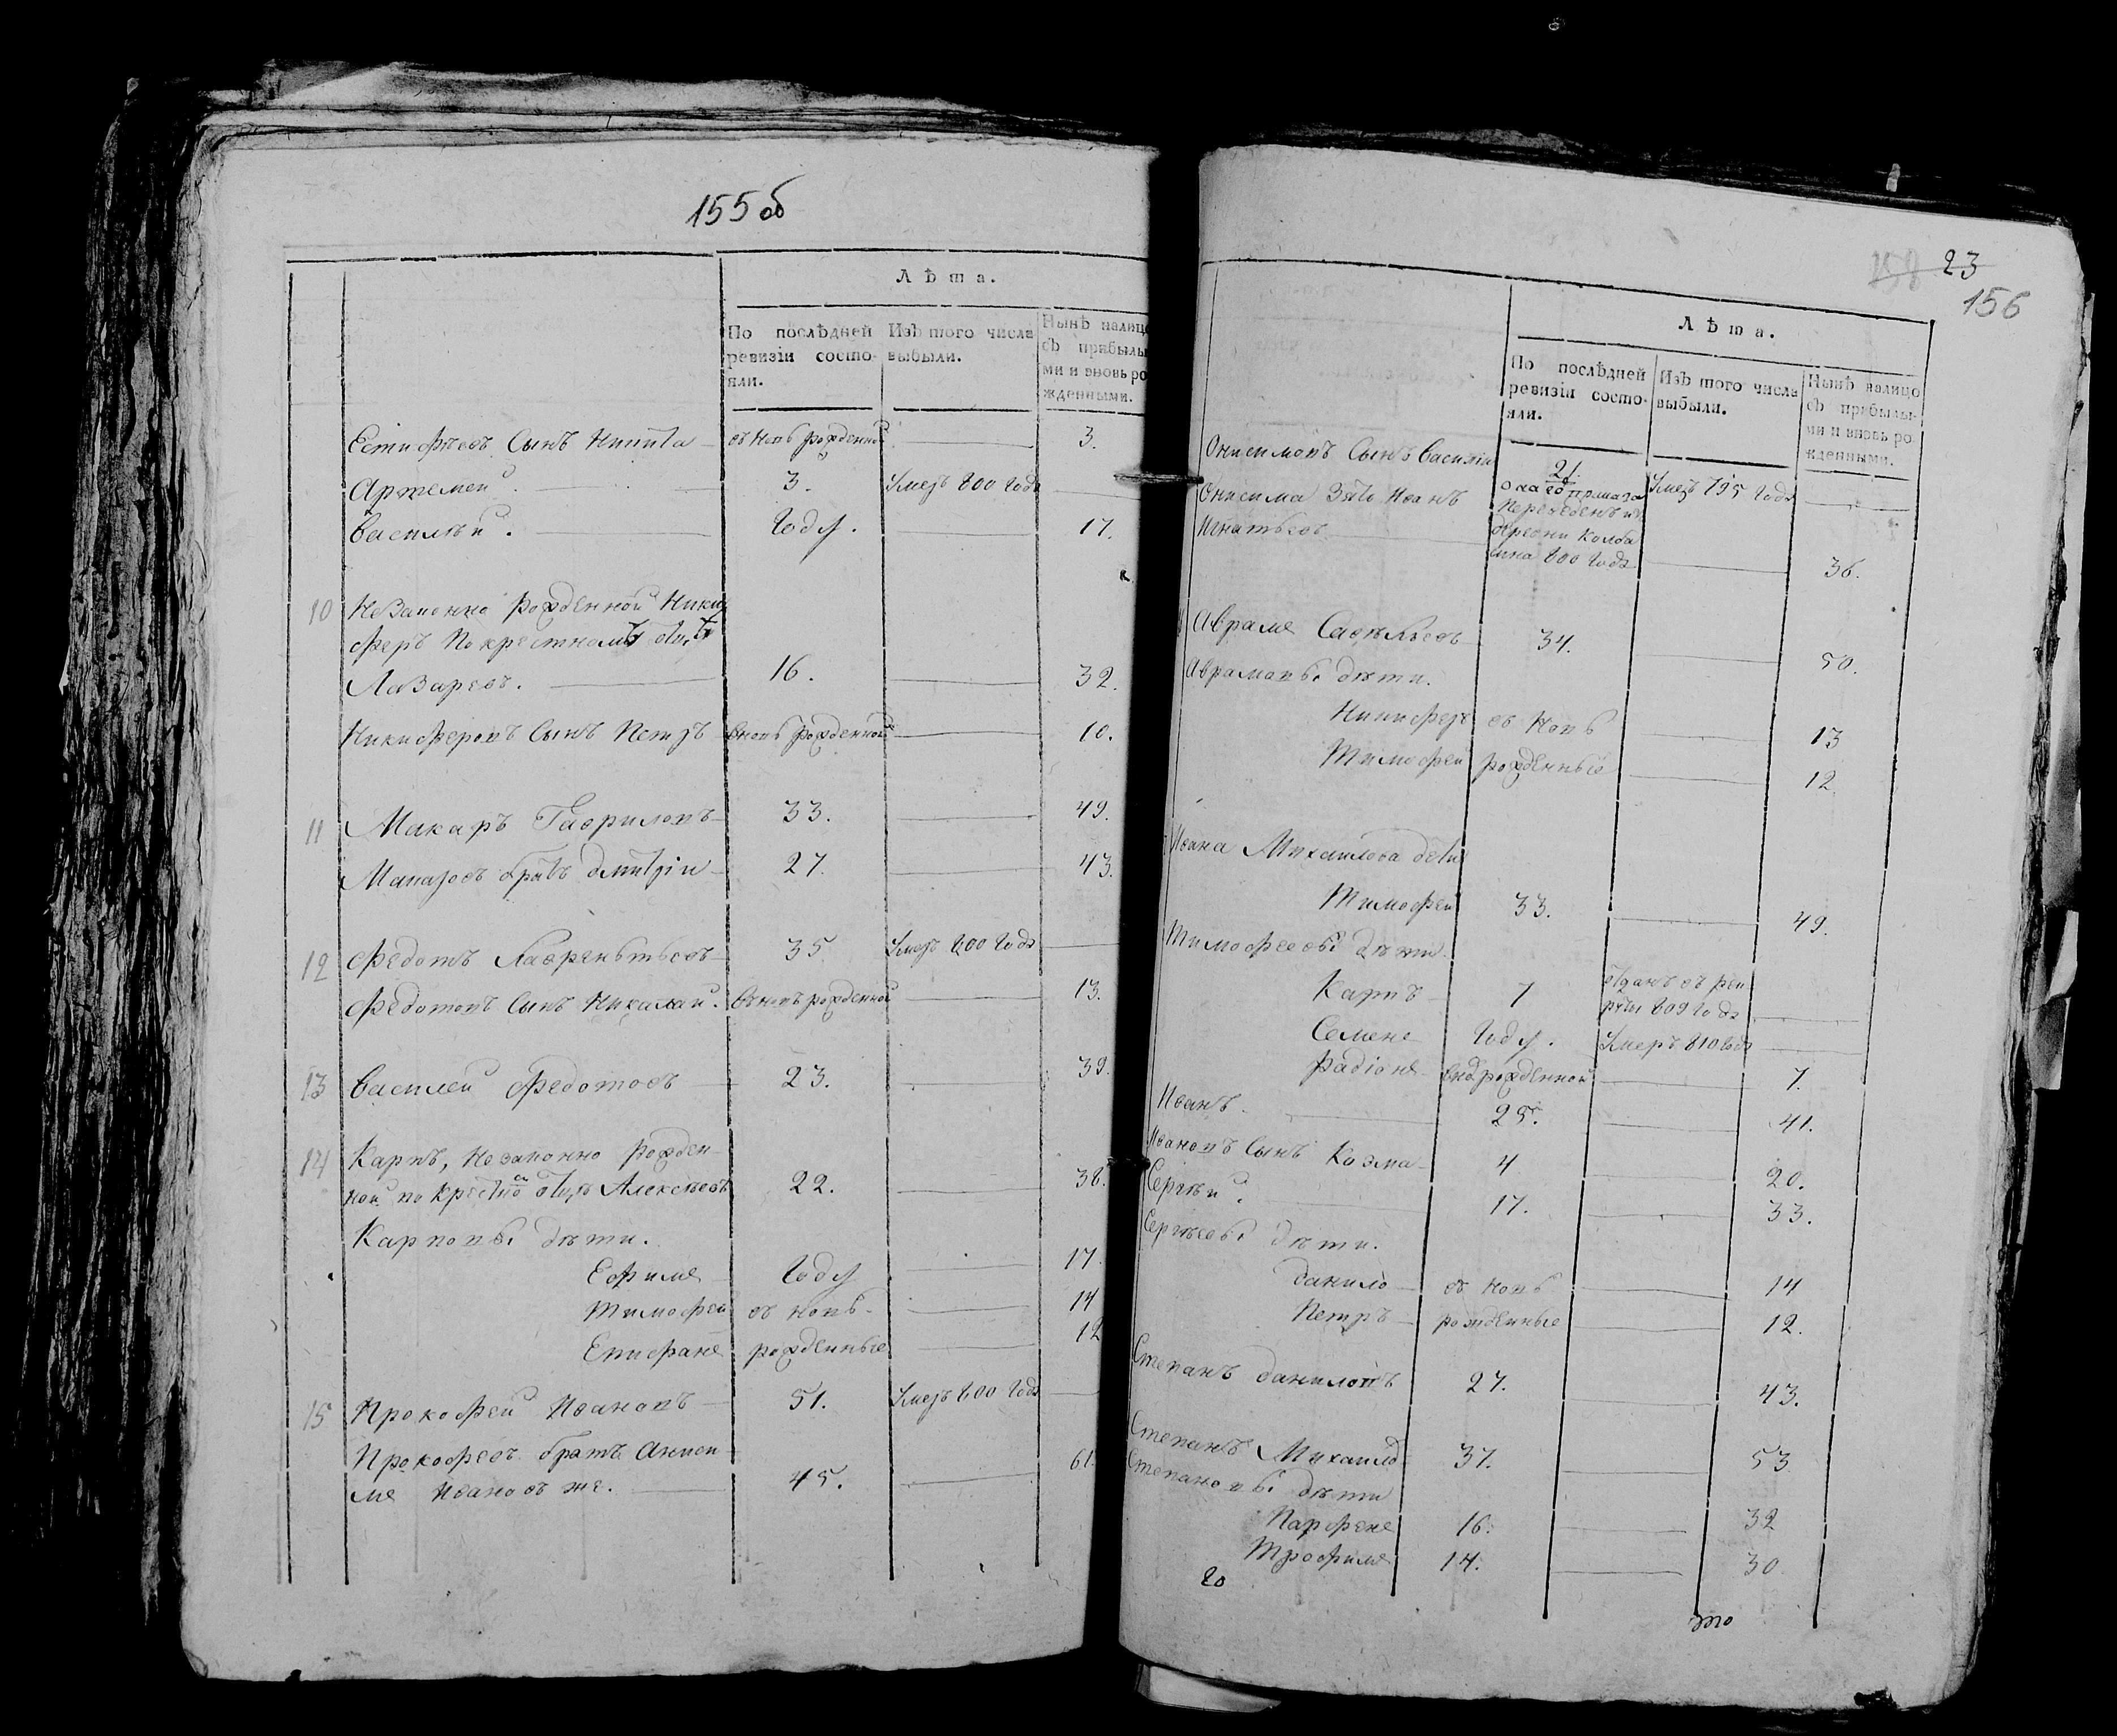 155 об
Лѣта.
По послѣдней Изъ того числа Нынѣ налицо
ревизіи состо- выбыли. съ прибылы-
яли. ми и вновь ро
жденными.
Естифѣевъ Сынъ Никита въ новь рожденной 3.
Артемей 3. Умеръ 800 Года
Василѣй. Году. 17.
10 Незаконно рожденной Ники
феръ По крестному отцу
Лазаревъ. 16. 32.
Никиферовъ Сынъ Петръ вновь рожденной 10.
11 Макаръ Гавриловъ 33. 49.
Макаровъ братъ Дмитріи 27. 43.
12 Федотъ Лаврентьевъ 35 Умеръ 800 Года
Федотовъ Сынъ Никалай. въновь рожденной 13.
13 Василей Федотовъ 23. 39.
14 Карпъ, Незаконно рожден
ной по крестно отцѣ Алексѣевъ 22. 38.
Карповы дѣти.
Ефиме Году 17
Тимофей въ новь 14
Епифане рожденные 12
15 Прокофей Ивановъ 51. Умеръ 800 Года
Прокофьевъ братъ Аниси
ме Ивановъ же. 45. 61.
158 23
156
Лѣта.
По послѣдней Изъ того числа Нынѣ налицо
ревизіи состо- выбыли. съ прибылы-
яли. ми и вновь ро
жденными.
Онисимовъ Сынъ Василіи 21. Умеръ 795 Года
Онисима Зять Иванъ
Игнатьевъ Переведенъ из
деревни Колба
сина 800 Года 36.
Авраме Савѣльевъ 34. 50.
Аврамовы дѣти.
Никиферъ въ Новь 13
Тимофей рожденные 12
Ивана Михаилова дети
Тимофей 33. 49.
Тимофеевы дѣти
Карпъ 7 отданъ въ рек
руты 809 Года
Семене Году. Умеръ 810 Года
Радіоне вно рожденной 7.
Иванъ 25. 41.
Ивановъ Сынъ Козма 4 20.
Сергѣй. 17. 33.
Сергѣевы дѣти.
Данило въ новь 14
Петръ рожденные 12.
Степанъ Даниловъ 27. 43.
Степанъ Михаило 37. 53
Степановы дѣти
Парфене 16. 32
Трофиме 14. 30